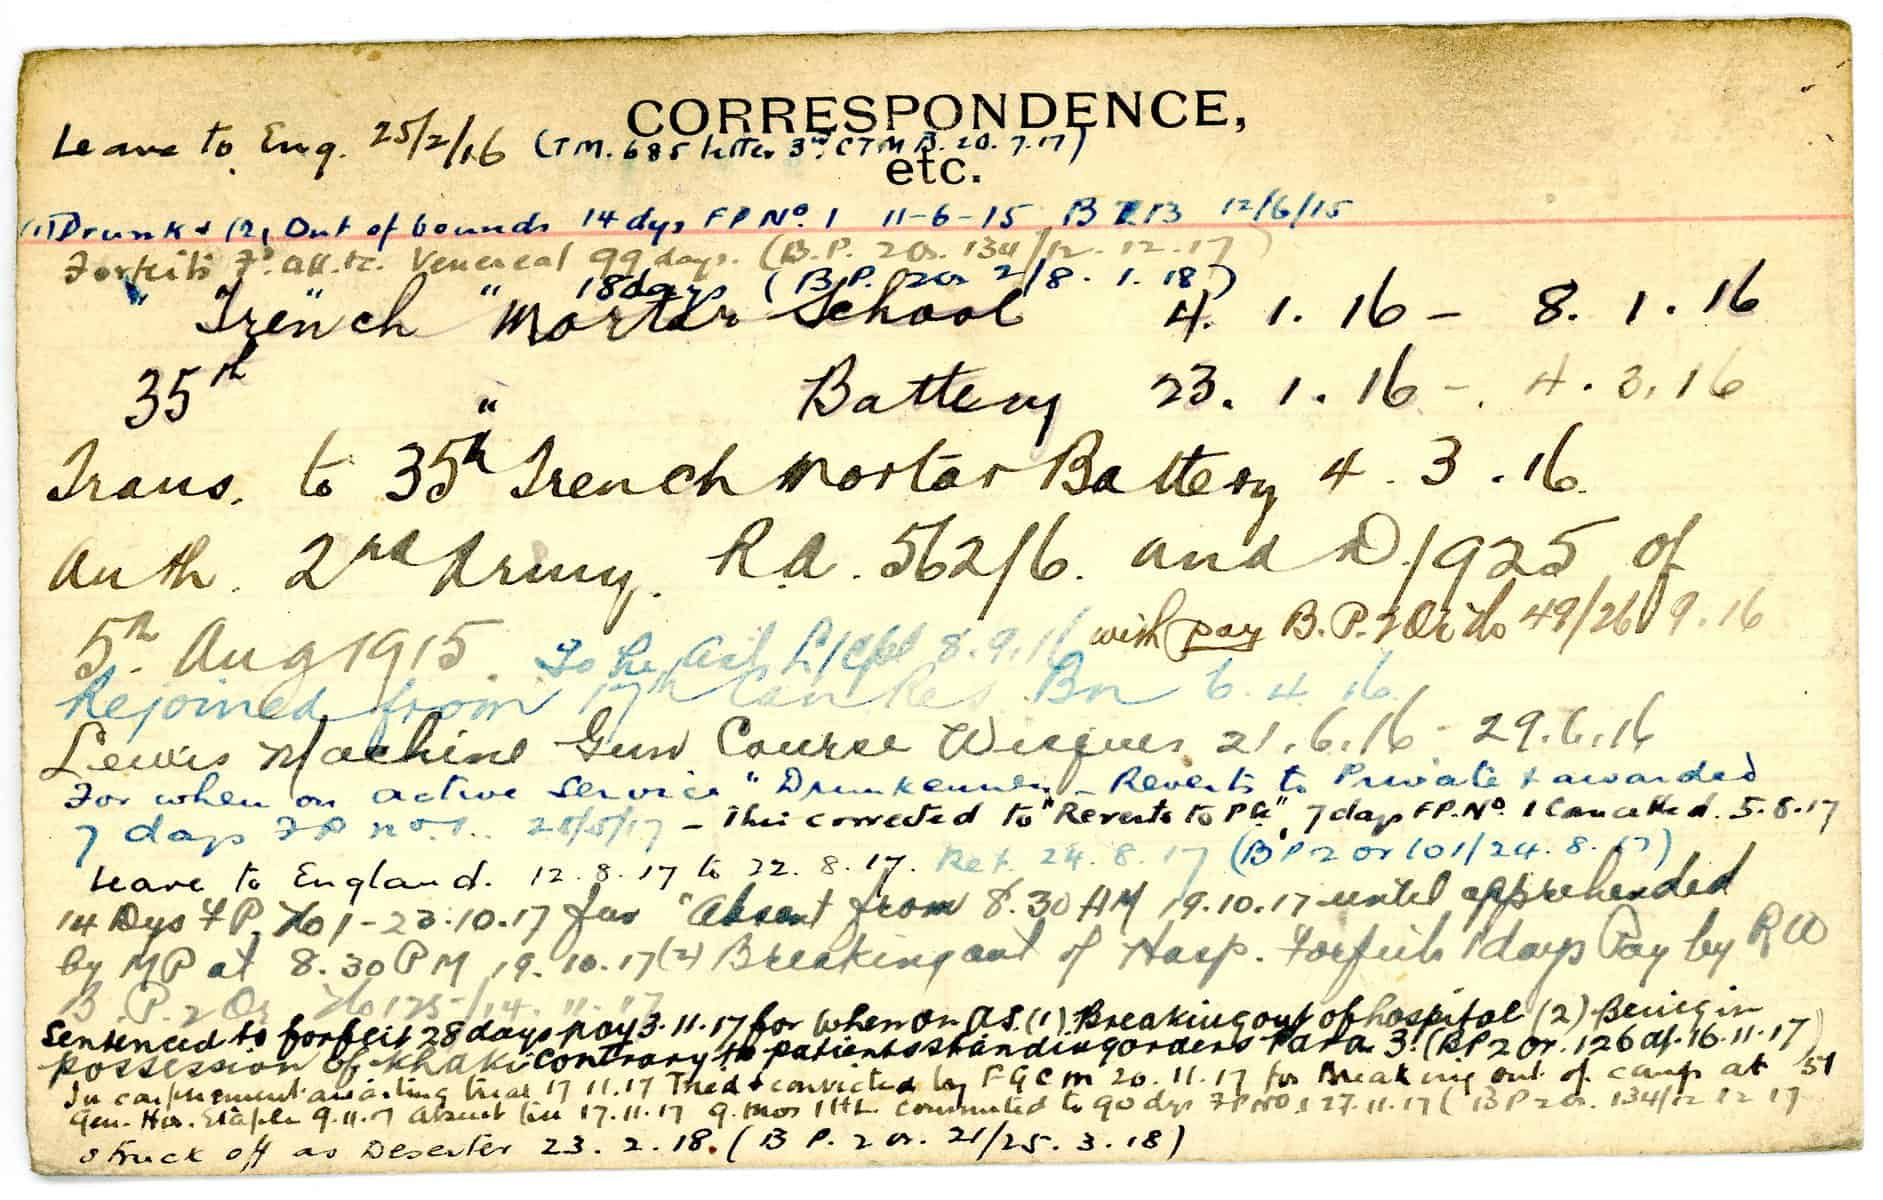 CORRESPONDENCE,
Leave to Eng. 25/2/16 (TM. 685 letter 3rd CTMB. 20. 7.17)
etc.
(1) Drunk & (2) Out of bounds 14 dys FP No. 1 11-6-15 B 213 12/6/15
Forfeits F. all. &c. Venereal 99 days. (B.P. 2 Or. 134/12. 12. 17)
" " " 18 days (B.P. 2 Or 2/8. 1. 18)
Trench Mortar School 4. 1. 16 - 8. 1. 16
35th " Battery 23. 1. 16 - 4. 3. 16
Trans. to 35th Trench Mortar Battery 4. 3. 16.
Auth. 2nd Army. R.A. 562/6. and D/925 of
5th Aug 1915. To be Act L/Cpl 8.9.16 with pay B.P. 2 Or No 49/26 9.16
Rejoined from 17th Can Res Bn 6. 4. 16
Lewis Machine Gun Course Wisques 21.6.16 - 29.6.16
For when on active service "Drunkenness - Reverts to Private & awarded
7 days FP No. 1. 25/5/17 - This corrected to "Reverts to Pte", 7 days FP. No. 1 Cancelled. 5.8.17
Leave to England. 12.8.17 to 22.8.17. Ret. 24.8.17 (BP 2 or 101/24.8.17)
14 Dys FP. No 1 - 23.10.17 for "Absent from 8.30 AM 19.10.17 until apprehended
by MP at 8.30 PM 19.10.17 (2) Breaking out of Hosp. Forfeits 1 days Pay by RW
B.P. 2 Or No 125/14. 11. 17
Sentenced to forfeit 28 days pay 3.11.17 for when on A.S. (1) Breaking out of hospital (2) Being in
possession of khaki contrary to patients standing orders Para 3. (B.P. 2 Or. 126 d/- 16.11.17)
In confinement awaiting trial 17.11.17 Tried & convicted by FGCM 20.11.17 for Breaking out of camp at 51
Gen. Hos. Etaples 9.11.17 absent till 17.11.17 9 mos IHL commuted to 90 dys FP No 1 27.11.17 (BP 2 Or. 134/12 12 17
Struck off as Deserter 23. 2. 18. (B P. 2 or. 21/25. 3. 18)